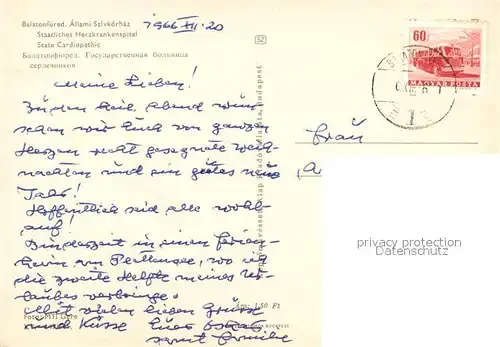 Balatonfüred. Állami Szívkórház
Staatliches Herzkrankenspital
State Cardiopathic
Балатонфюред. Государственная больница
сердечников
1966 XII. 20
60
MAGYAR POSTA
Meine Lieben!
Zu den Heil. Abend wün-
schen wir Euch von ganzen
Herzen recht gesegnete Weih-
nachten und ein gutes neues
Jahr!
Hoffentlich seid alle wohl-
auf!
Bin derzeit in einen Ferien-
heim am Plattensee, wo ich
die zweite Helfte meines Ur-
laubes verbringe.
Mit vielen lieben Grüsse
und Küsse Eure
samt Familie
Frau
Ára: 1,50 Ft
Foto: MTI
BUDAPEST
privacy protection
Datenschutz